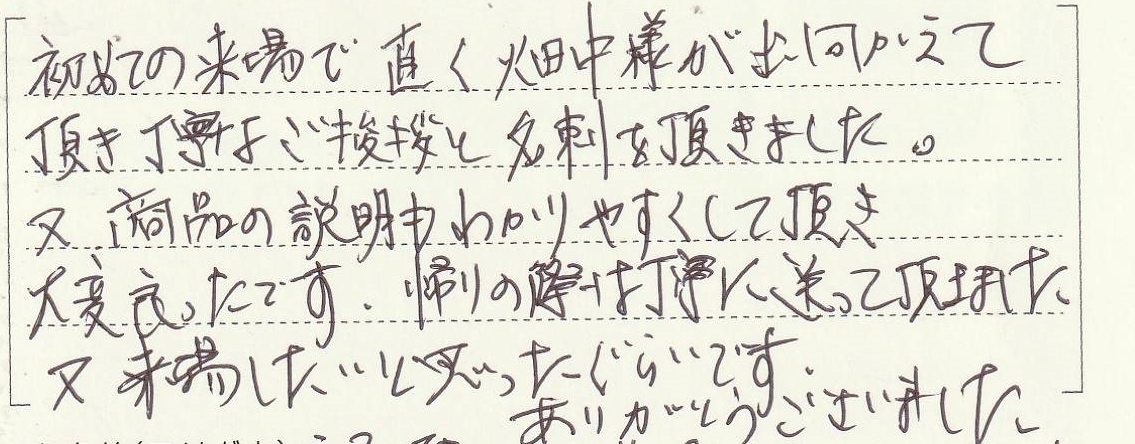 初めての来場で 直く畑中様が出向かえて
頂き丁寧なご挨拶と名刺を頂きました。
又 商品の説明もわかりやすくして頂き
大変良ったです. 帰りの際は丁寧に送って頂きました
又 来場したいと思ったぐらいです.
ありがとうございました